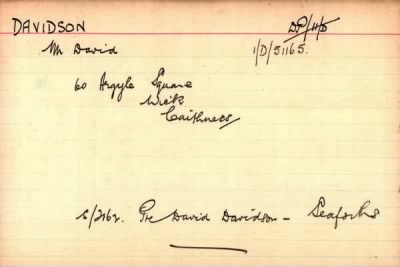 DAVIDSON
DP/H/D
Mr David
1/D/51165.
60 Argyle Square
Wick
Caithness
S/2162. Pte David Davidson - Seaforths